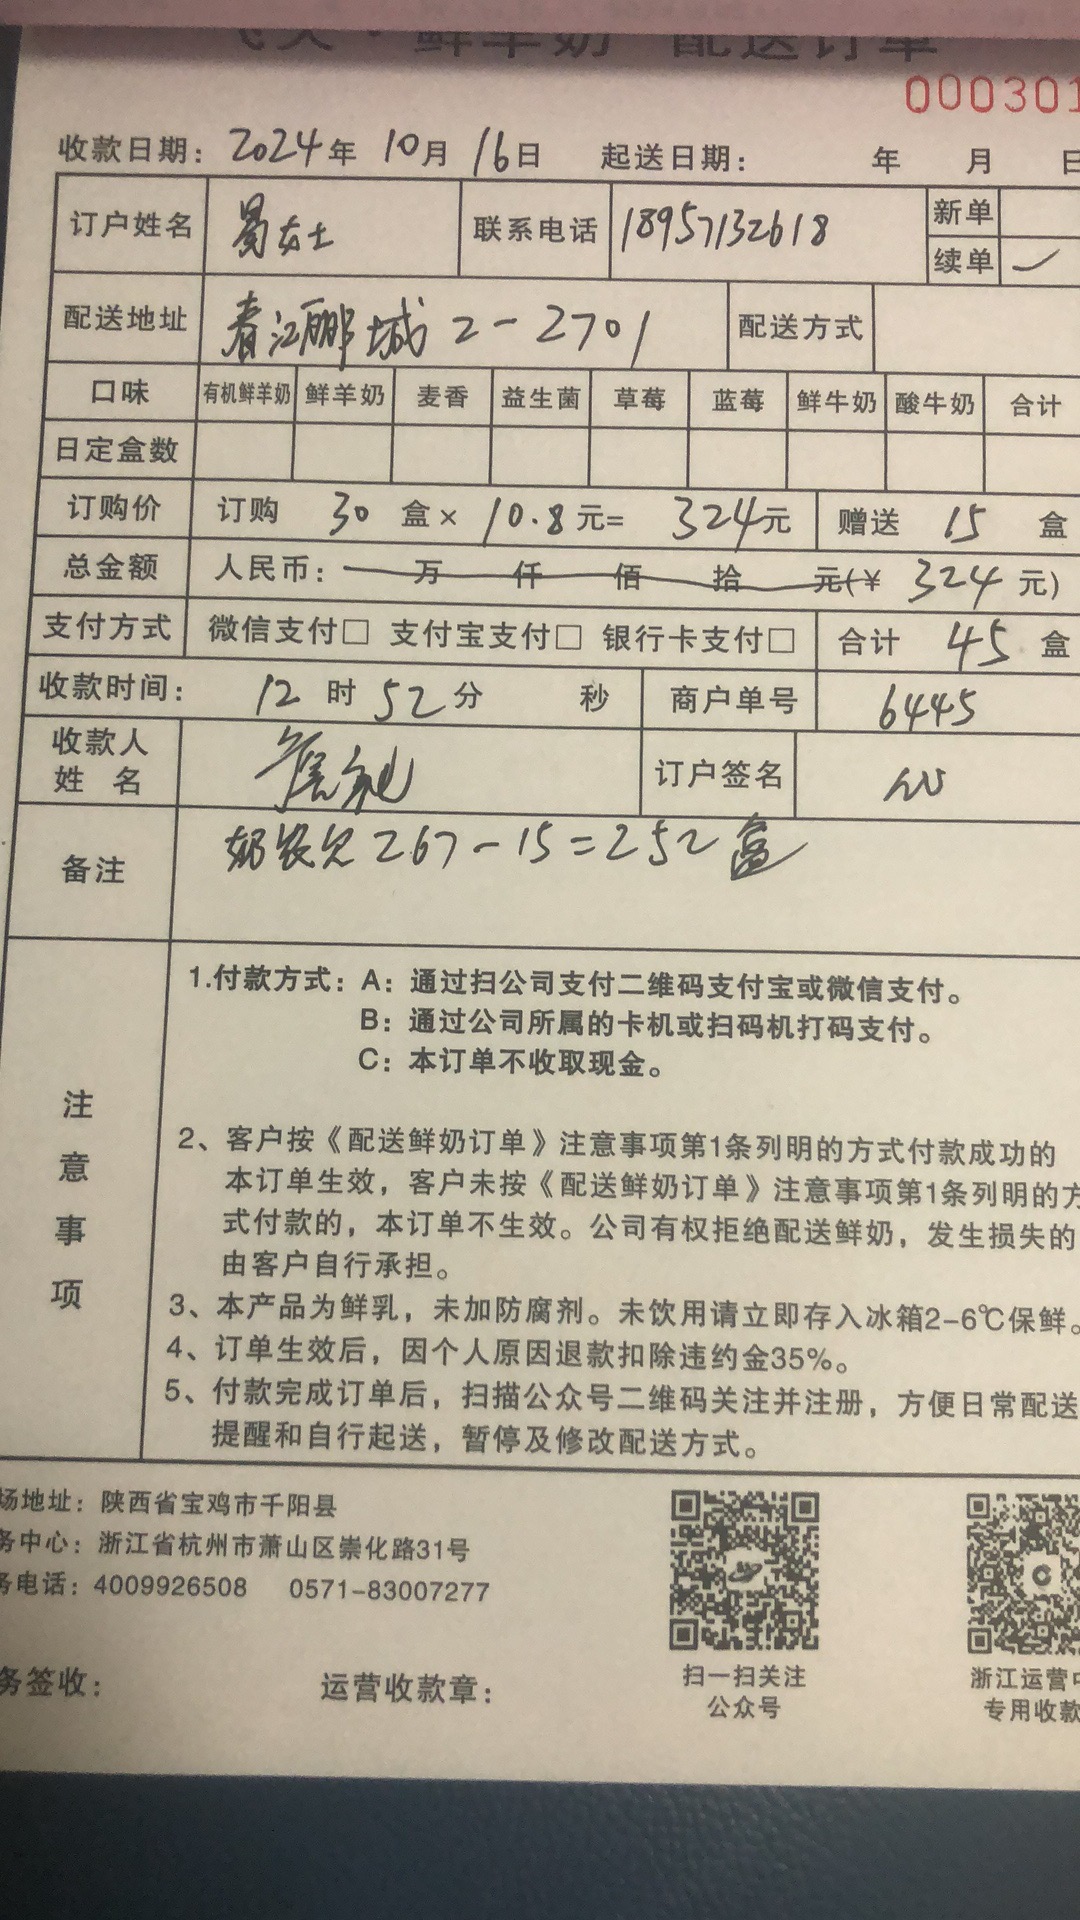 飞天·鲜羊奶 配送订单
000301
收款日期：2024年 10月 16日 起送日期： 年 月 日
订户姓名 女士 联系电话 18957132618 新单
续单 ✓
配送地址 春江郦城 2-2701 配送方式
口味 有机鲜羊奶 鲜羊奶 麦香 益生菌 草莓 蓝莓 鲜牛奶 酸牛奶 合计
日定盒数
订购价 订购 30 盒× 10.8元= 324元 赠送 15 盒
总金额 人民币： 万 仟 佰 拾 元(¥ 324 元)
支付方式 微信支付□ 支付宝支付□ 银行卡支付□ 合计 45 盒
收款时间： 12 时 52 分 秒 商户单号 6445
收款人
姓 名 订户签名
备注 奶农欠267-15=252盒
注意事项
1.付款方式：A：通过扫公司支付二维码支付宝或微信支付。
B：通过公司所属的卡机或扫码机打码支付。
C：本订单不收取现金。
2、客户按《配送鲜奶订单》注意事项第1条列明的方式付款成功的
本订单生效，客户未按《配送鲜奶订单》注意事项第1条列明的方
式付款的，本订单不生效。公司有权拒绝配送鲜奶，发生损失的
由客户自行承担。
3、本产品为鲜乳，未加防腐剂。未饮用请立即存入冰箱2-6℃保鲜。
4、订单生效后，因个人原因退款扣除违约金35%。
5、付款完成订单后，扫描公众号二维码关注并注册，方便日常配送
提醒和自行起送，暂停及修改配送方式。
场地址：陕西省宝鸡市千阳县
务中心：浙江省杭州市萧山区崇化路31号
务电话：4009926508 0571-83007277
扫一扫关注
公众号
浙江运营中
专用收款
务签收： 运营收款章：